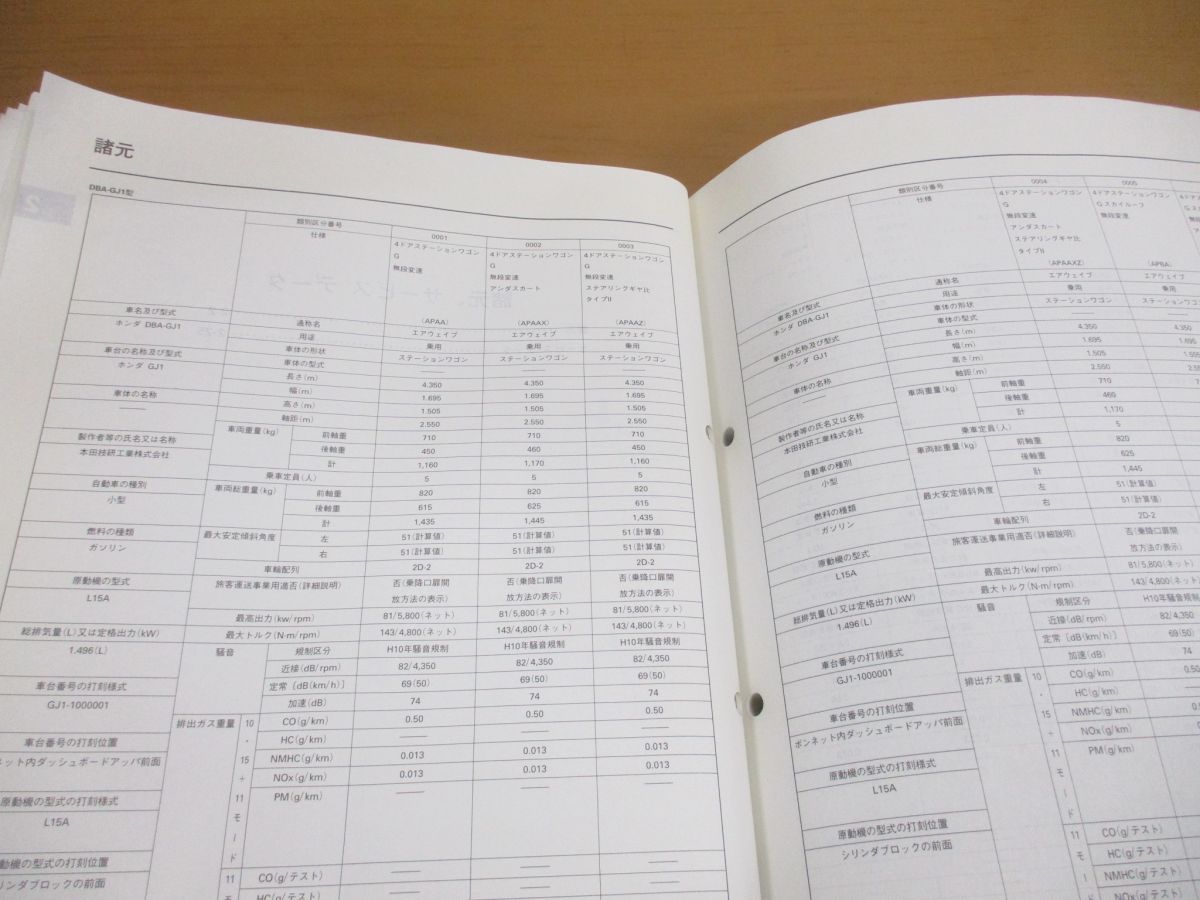 諸元
DBA-GJ1型
類別区分番号 0001 0002 0003
仕様 4ドアステーションワゴン 4ドアステーションワゴン 4ドアステーションワゴン
G G G
無段変速 無段変速 無段変速
アンダスカート ステアリングギヤ比
タイプII
(APAA) (APAAX) (APAAZ)
車名及び型式
ホンダ DBA-GJ1
車台の名称及び型式
ホンダ GJ1
車体の名称
製作者等の氏名又は名称
本田技研工業株式会社
自動車の種別
小型
燃料の種類
ガソリン
原動機の型式
L15A
総排気量(L)又は定格出力(kW)
1.496(L)
車台番号の打刻様式
GJ1-1000001
車台番号の打刻位置
ンネット内ダッシュボードアッパ前面
原動機の型式の打刻様式
L15A
動機の型式の打刻位置
リンダブロックの前面
通称名 エアウェイブ エアウェイブ エアウェイブ
用途 乗用 乗用 乗用
車体の形状 ステーションワゴン ステーションワゴン ステーションワゴン
車体の型式
長さ(m) 4.350 4.350 4.350
幅(m) 1.695 1.695 1.695
高さ(m) 1.505 1.505 1.505
軸距(m) 2.550 2.550 2.550
車両重量(kg) 前軸重 710 710 710
後軸重 450 460 450
計 1,160 1,170 1,160
乗車定員(人) 5 5 5
車両総重量(kg) 前軸重 820 820 820
後軸重 615 625 615
計 1,435 1,445 1,435
最大安定傾斜角度 左 51(計算値) 51(計算値) 51(計算値)
右 51(計算値) 51(計算値) 51(計算値)
車輪配列 2D-2 2D-2 2D-2
旅客運送事業用適否(詳細説明) 否(乗降口扉開 否(乗降口扉開 否(乗降口扉開
放方法の表示) 放方法の表示) 放方法の表示)
最高出力(kw/rpm) 81/5,800(ネット) 81/5,800(ネット) 81/5,800(ネット)
最大トルク(N-m/rpm) 143/4,800(ネット) 143/4,800(ネット) 143/4,800(ネット)
騒音 規制区分 H10年騒音規制 H10年騒音規制 H10年騒音規制
近接(dB/rpm) 82/4,350 82/4,350 82/4,350
定常[dB(km/h)] 69(50) 69(50) 69(50)
加速(dB) 74 74 74
排出ガス重量 10・15+11モード CO(g/km) 0.50 0.50 0.50
HC(g/km)
NMHC(g/km) 0.013 0.013 0.013
NOx(g/km) 0.013 0.013 0.013
PM(g/km)
11モ CO(g/テスト)
HC(g/テスト)
類別区分番号 0004 0005
仕様 4ドアステーションワゴン 4ドアステーションワゴン
G Gスカイルーフ
無段変速 無段変速
アンダスカート
ステアリングギヤ比
タイプII
(APAAXZ) (APBA)
車名及び型式
ホンダ DBA-GJ1
車台の名称及び型式
ホンダ GJ1
車体の名称
製作者等の氏名又は名称
本田技研工業株式会社
自動車の種別
小型
燃料の種類
ガソリン
原動機の型式
L15A
総排気量(L)又は定格出力(kW)
1.496(L)
車台番号の打刻様式
GJ1-1000001
車台番号の打刻位置
ボンネット内ダッシュボードアッパ前面
原動機の型式の打刻様式
L15A
原動機の型式の打刻位置
シリンダブロックの前面
通称名 エアウェイブ エアウェイブ
用途 乗用 乗用
車体の形状 ステーションワゴン ステーションワゴン
車体の型式
長さ(m) 4.350 4.350
幅(m) 1.695 1.695
高さ(m) 1.505 1.505
軸距(m) 2.550
車両重量(kg) 前軸重 710
後軸重 460
計 1,170
乗車定員(人) 5
車両総重量(kg) 前軸重 820
後軸重 625
計 1,445
最大安定傾斜角度 左 51(計算値)
右 51(計算値)
車輪配列 2D-2
旅客運送事業用適否(詳細説明) 否(乗降口扉開
放方法の表示)
最高出力(kw/rpm) 81/5,800(ネット)
最大トルク(N-m/rpm) 143/4,800(ネット)
騒音 規制区分 H10年騒音規制
近接(dB/rpm) 82/4,350
定常[dB(km/h)] 69(50)
加速(dB) 74
排出ガス重量 10・15+11モード CO(g/km) 0.50
HC(g/km)
NMHC(g/km)
NOx(g/km)
PM(g/km)
11モー CO(g/テスト)
HC(g/テスト)
NMHC(g/テスト)
NOx(g/テスト)